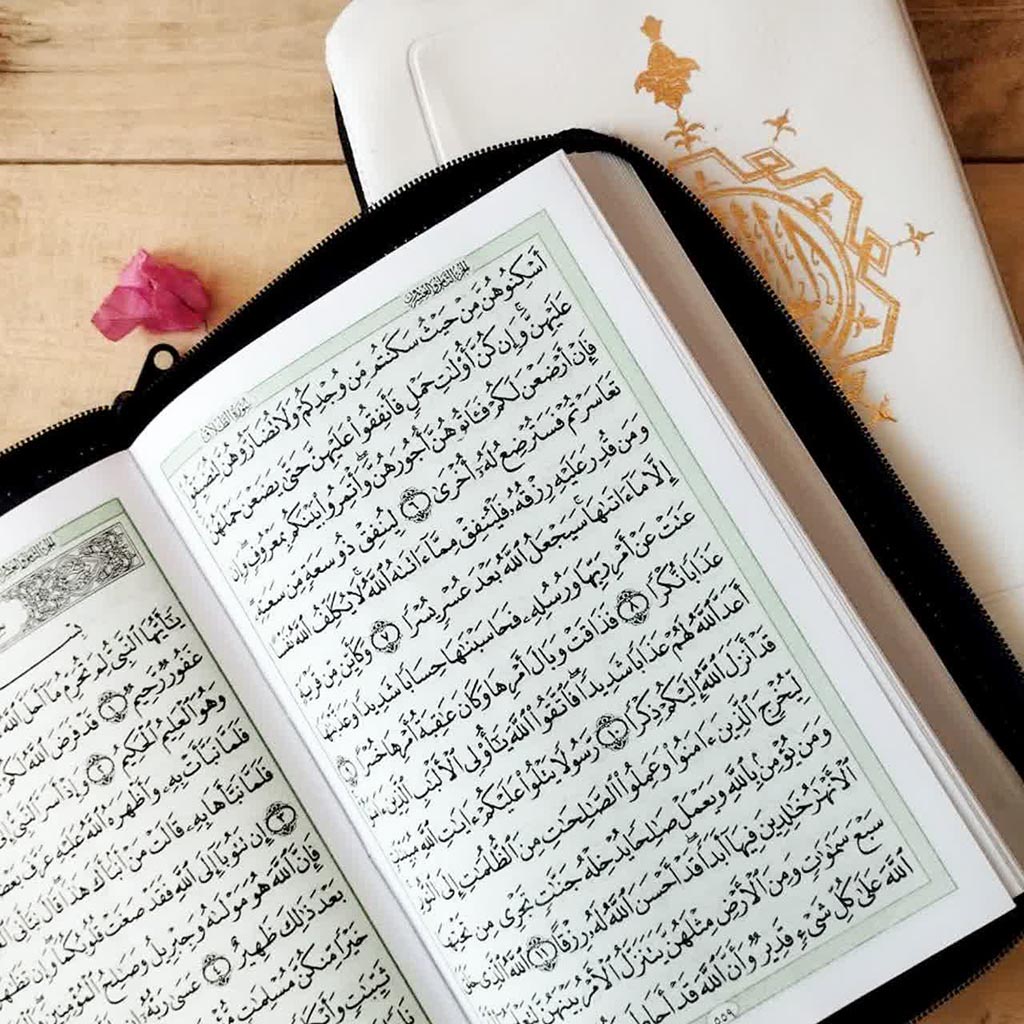 الجزء الثامن والعشرون
سورة الطلاق
أَسْكِنُوهُنَّ مِنْ حَيْثُ سَكَنتُم مِّن وُجْدِكُمْ وَلَا تُضَآرُّوهُنَّ لِتُضَيِّقُوا۟
عَلَيْهِنَّ ۚ وَإِن كُنَّ أُو۟لَـٰتِ حَمْلٍ فَأَنفِقُوا۟ عَلَيْهِنَّ حَتَّىٰ يَضَعْنَ حَمْلَهُنَّ
فَإِنْ أَرْضَعْنَ لَكُمْ فَـَٔاتُوهُنَّ أُجُورَهُنَّ ۖ وَأْتَمِرُوا۟ بَيْنَكُم بِمَعْرُوفٍ ۖ وَإِن
تَعَاسَرْتُمْ فَسَتُرْضِعُ لَهُۥٓ أُخْرَىٰ ٦ لِيُنفِقْ ذُو سَعَةٍ مِّن سَعَتِهِۦ ۖ
وَمَن قُدِرَ عَلَيْهِ رِزْقُهُۥ فَلْيُنفِقْ مِمَّآ ءَاتَىٰهُ ٱللَّهُ ۚ لَا يُكَلِّفُ ٱللَّهُ نَفْسًا
إِلَّا مَآ ءَاتَىٰهَا ۚ سَيَجْعَلُ ٱللَّهُ بَعْدَ عُسْرٍ يُسْرًا ٧ وَكَأَيِّن مِّن قَرْيَةٍ
عَتَتْ عَنْ أَمْرِ رَبِّهَا وَرُسُلِهِۦ فَحَاسَبْنَـٰهَا حِسَابًا شَدِيدًا وَعَذَّبْنَـٰهَا
عَذَابًا نُّكْرًا ٨ فَذَاقَتْ وَبَالَ أَمْرِهَا وَكَانَ عَـٰقِبَةُ أَمْرِهَا خُسْرًا ٩
أَعَدَّ ٱللَّهُ لَهُمْ عَذَابًا شَدِيدًا ۖ فَٱتَّقُوا۟ ٱللَّهَ يَـٰٓأُو۟لِى ٱلْأَلْبَـٰبِ ٱلَّذِينَ ءَامَنُوا۟ ۚ
قَدْ أَنزَلَ ٱللَّهُ إِلَيْكُمْ ذِكْرًا ١٠ رَّسُولًا يَتْلُوا۟ عَلَيْكُمْ ءَايَـٰتِ ٱللَّهِ مُبَيِّنَـٰتٍ
لِّيُخْرِجَ ٱلَّذِينَ ءَامَنُوا۟ وَعَمِلُوا۟ ٱلصَّـٰلِحَـٰتِ مِنَ ٱلظُّلُمَـٰتِ إِلَى ٱلنُّورِ ۚ
وَمَن يُؤْمِنۢ بِٱللَّهِ وَيَعْمَلْ صَـٰلِحًا يُدْخِلْهُ جَنَّـٰتٍ تَجْرِى مِن تَحْتِهَا
ٱلْأَنْهَـٰرُ خَـٰلِدِينَ فِيهَآ أَبَدًا ۖ قَدْ أَحْسَنَ ٱللَّهُ لَهُۥ رِزْقًا ١١ ٱللَّهُ ٱلَّذِى خَلَقَ
سَبْعَ سَمَـٰوَٰتٍ وَمِنَ ٱلْأَرْضِ مِثْلَهُنَّ يَتَنَزَّلُ ٱلْأَمْرُ بَيْنَهُنَّ
ٱللَّهَ عَلَىٰ كُلِّ شَىْءٍ قَدِيرٌ وَأَنَّ ٱللَّهَ قَدْ أَحَاطَ
٥٥٩
يَـٰٓأَيُّهَا ٱلنَّبِىُّ لِمَ تُحَرِّمُ مَآ أَحَلَّ ٱللَّهُ
غَفُورٌ رَّحِيمٌ ١ قَدْ فَرَضَ ٱللَّهُ لَكُمْ
وَهُوَ ٱلْعَلِيمُ ٱلْحَكِيمُ ٢ وَإِذْ أَسَرَّ ٱلنَّبِىُّ
فَلَمَّا نَبَّأَتْ بِهِۦ وَأَظْهَرَهُ ٱللَّهُ عَلَيْهِ عَرَّفَ بَعْضَهُۥ
فَلَمَّا نَبَّأَهَا بِهِۦ قَالَتْ مَنْ أَنۢبَأَكَ هَـٰذَا ۖ قَالَ نَبَّأَنِىَ
٣ إِن تَتُوبَآ إِلَى ٱللَّهِ فَقَدْ صَغَتْ قُلُوبُكُمَا ۖ وَإِن تَظَـٰهَرَا
فَإِنَّ ٱللَّهَ هُوَ مَوْلَىٰهُ وَجِبْرِيلُ وَصَـٰلِحُ ٱلْمُؤْمِنِينَ
بَعْدَ ذَٰلِكَ ظَهِيرٌ ٤ عَسَىٰ رَبُّهُۥٓ
خَيْرًا مِّنكُنَّ مُسْلِمَـٰتٍ
ثَيِّبَـٰتٍ وَأَبْكَارًا